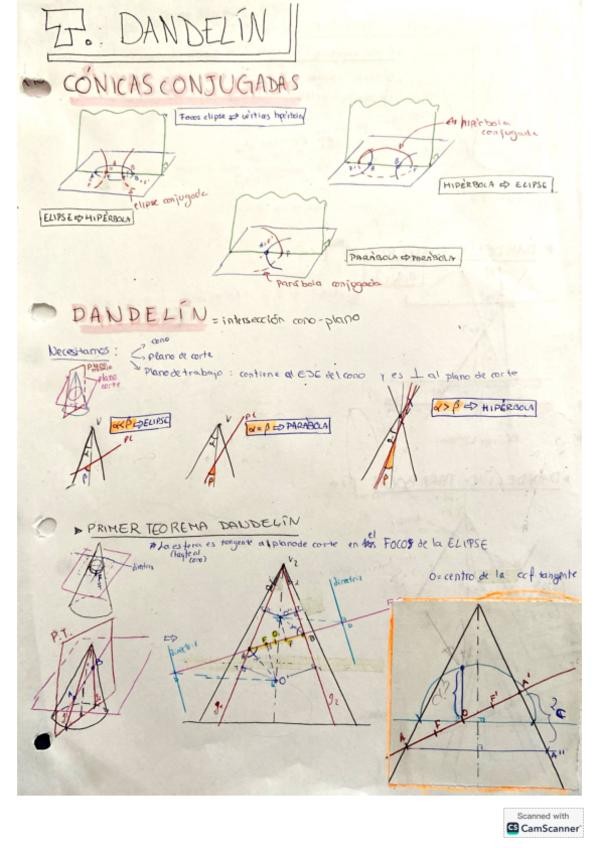 T. : DANDELÍN
CÓNICAS CONJUGADAS
Focos elipse ⇌ vértices hipérbola
hipérbola
conjugada
elipse conjugada
ELIPSE ⇨ HIPÉRBOLA
HIPÉRBOLA ⇨ ELIPSE
PARÁBOLA ⇨ PARÁBOLA
Parábola conjugada
DANDELÍN = intersección cono-plano
Necesitamos :
cono
Plano de corte
Plano de trabajo : contiene al EJE del cono y es ⊥ al plano de corte
plano
corte
α<β ⇨ ELIPSE
α = β ⇨ PARÁBOLA
α > β ⇨ HIPÉRBOLA
V
PL
PL
PRIMER TEOREMA DANDELÍN
La esfera es tangente al plano de corte en el FOCOS de la ELIPSE
O = centro de la ccf tangente
directriz
directriz
P.T.
V2
g1
g2
A
F
O
F'
A'
A''
Scanned with
CS CamScanner